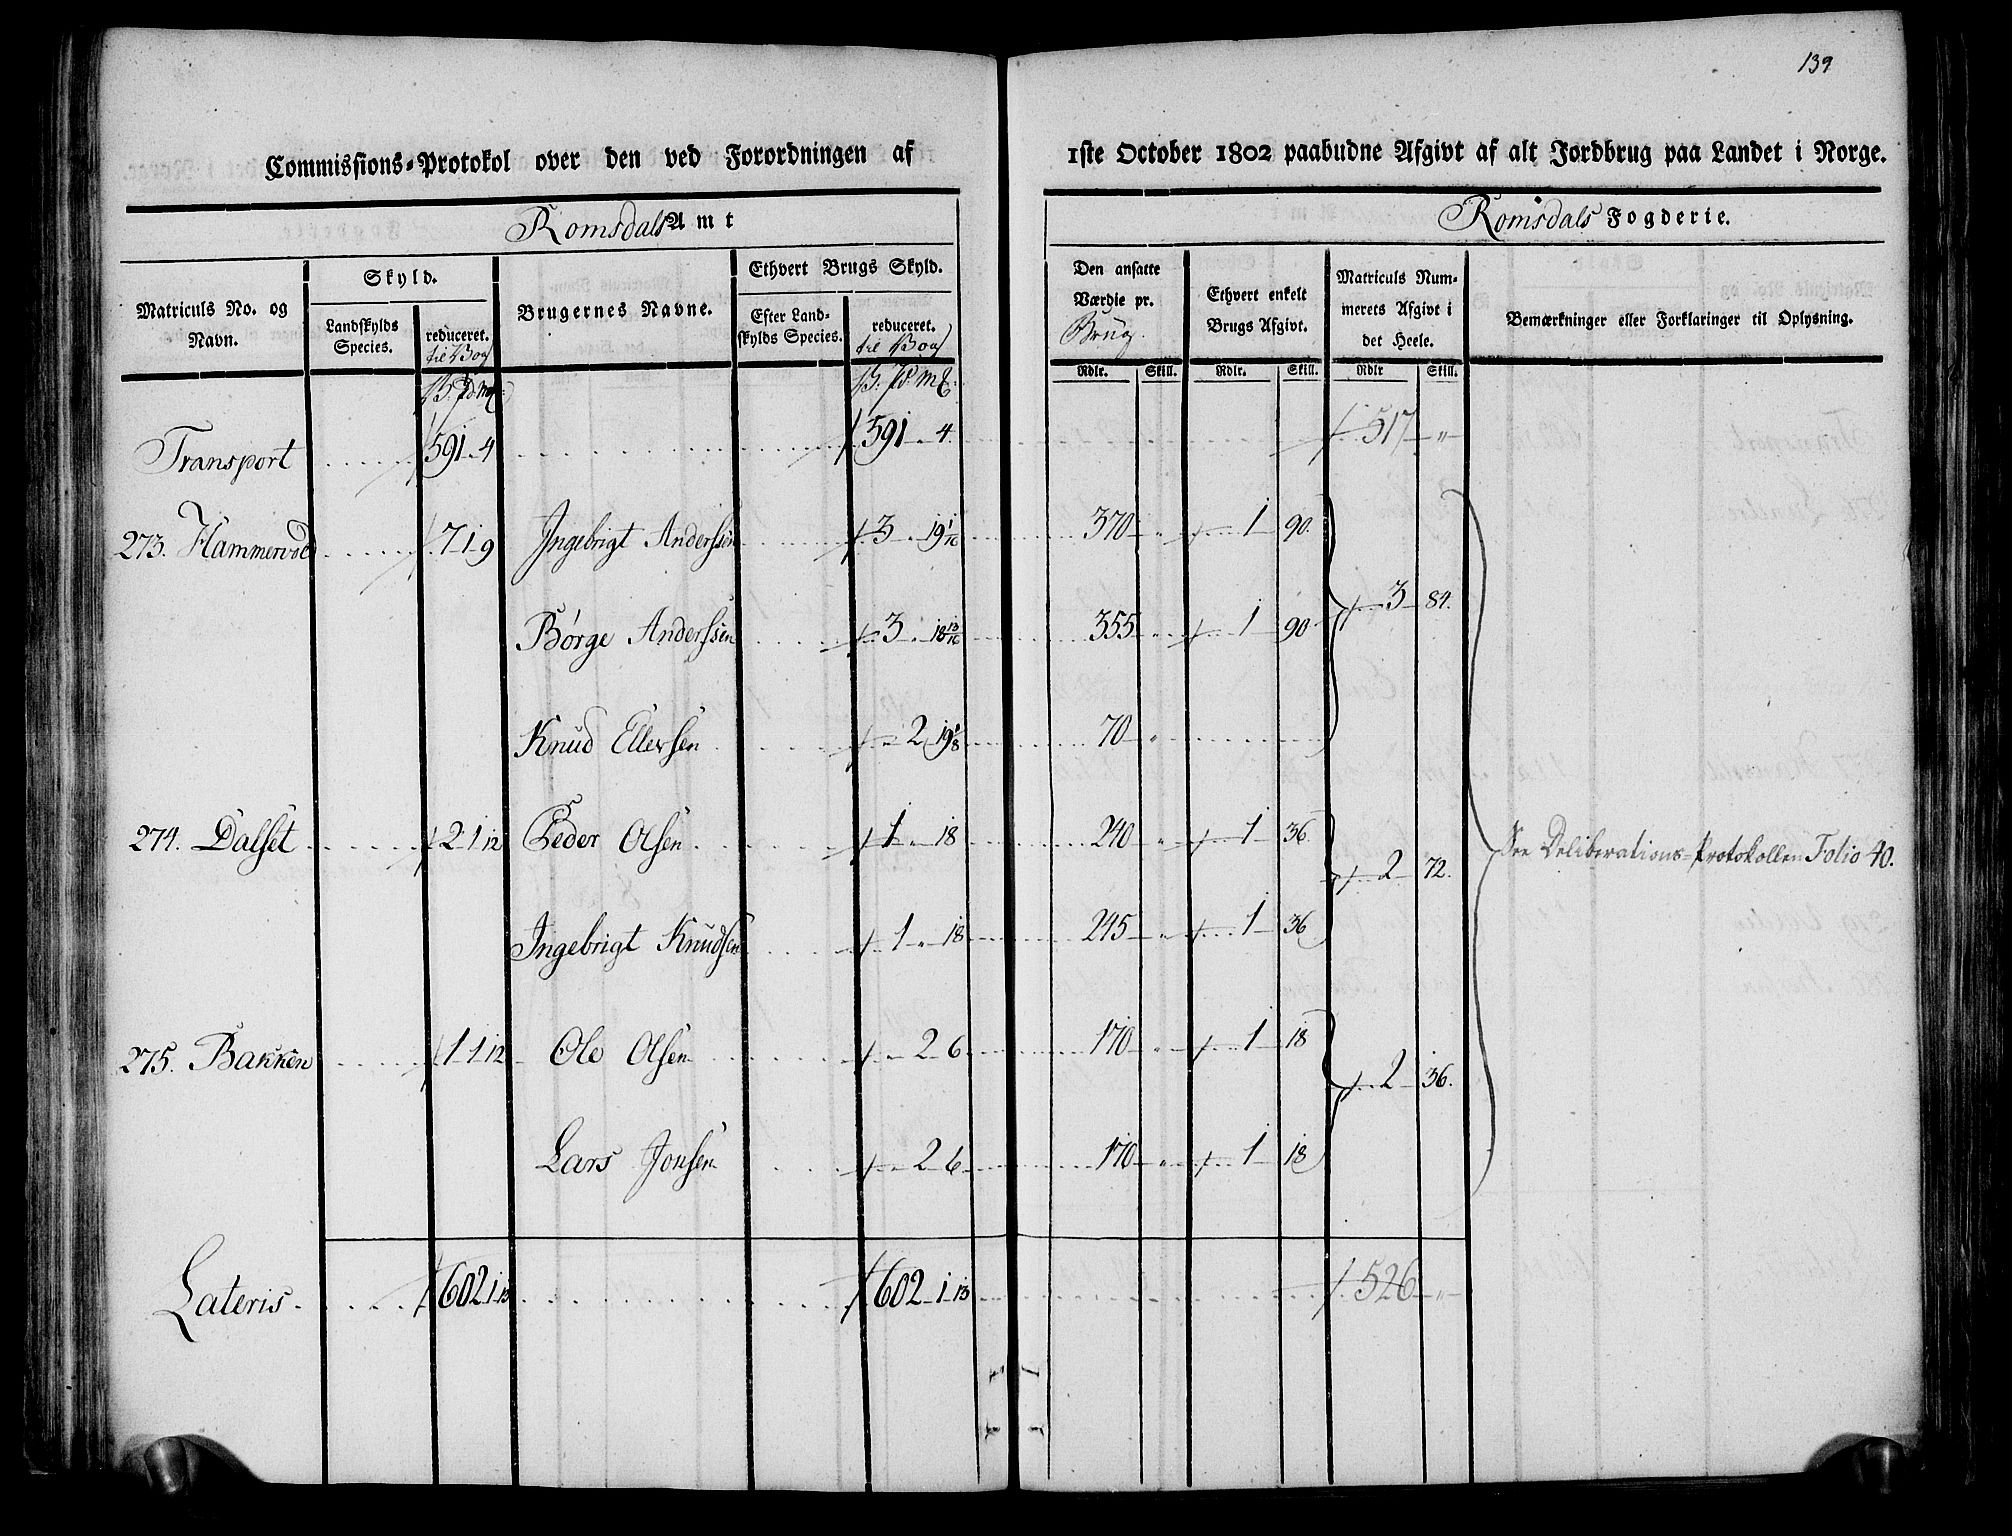 139
Commissions-Protokol over den ved Forordningen af 1ste October 1802 paabudne Afgivt af alt Jordbrug paa Landet i Norge.
Romsdals Amt Romsdals Fogderie.
Matriculs No. og Navn. | Skyld. Landskylds Species. | reduceret. til Vog | Brugernes Navne. | Ethvert Brugs Skyld. Efter Landskylds Species. | reduceret. til Vog | Den ansatte Værdie pr. Brug. | Ethvert enkelt Brugs Afgivt. | Matriculs Nummerets Afgivt i det Heele. | Bemærkninger eller Forklaringer til Oplysning.
Rdlr. Skill. Rdlr. Skill. Rdlr Skill.
Transport 591 " 4 591 " 4 517 "
273. Hammervold 7 1 9 Ingebrigt Anderssen 3 " 19 1/16 370 " 1 90.
Børge Anderssen 3 " 18 13/16 355 " 1 90 3 84.
Knud Ellersen " 2 19 1/8 70 "
274. Dalset 2 1 12 Peder Olsen 1 " 18 240 " 1 36
2 72. See Deliberations-Protokollen Folio 40.
Ingebrigt Knudsen 1 " 18 245 " 1 36
275. Bakken 1 1 12 Ole Olsen " 2 6 170 " 1 18
2 36.
Lars Jonsen " 2 6 170 " 1 18
Lateris 602 1 13 602 1 13 526 "